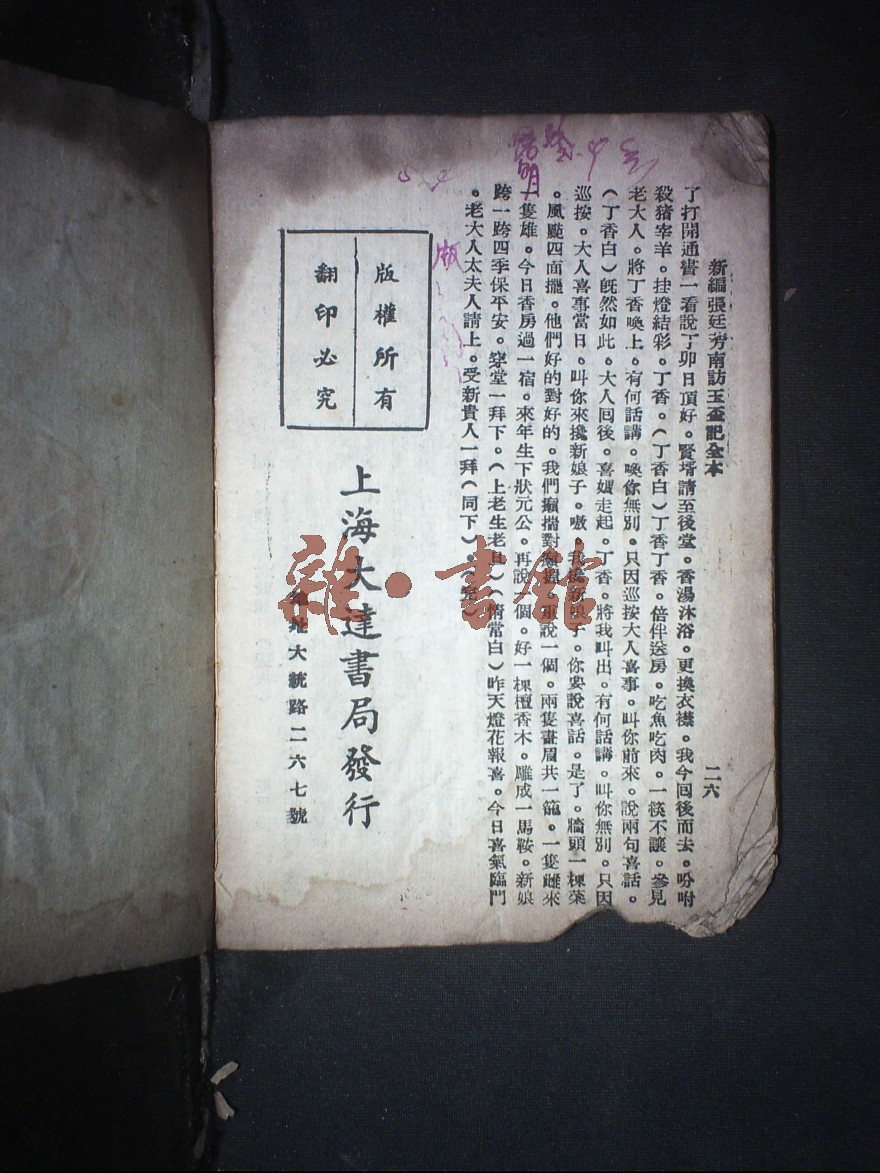 新編張廷秀南訪玉盃記全本
二六
了打開通書一看說丁卯日頂好。賢壻請至後堂。香湯沐浴。更換衣襟。我今回後而去。吩咐
殺猪宰羊。挂燈結彩。丁香。(丁香白)丁香丁香。倍伴送房。吃魚吃肉。一筷不讓。參見
老大人。將丁香喚上。有何話講。喚你無別。只因巡按大人喜事。叫你前來。說兩句喜話。
(丁香白)旣然如此。大人回後。喜嬤走起。丁香。將我叫出。有何話講。叫你無別。只因
巡按。大人喜事當日。叫你來攙新娘子。嗷。我攙新娘子。你要說喜話。是了。牆頭一棵菜
。風颳四面擺。他們好的對好的。我們癩揣對癩揣。重說一個。兩隻畫眉共一籠。一隻雌來
一隻雄。今日香房過一宿。來年生下狀元公。再說一個。好一棵檀香木。雕成一馬鞍。新娘
跨一跨四季保平安。穿堂一拜下。(上老生老旦)(白)昨天燈花報喜。今日喜氣臨門
。老大人太夫人請上。受新貴人一拜(同下)(完)
版權所有
翻印必究
上海大達書局發行
地址大統路二六七號
版
明
雜·書館